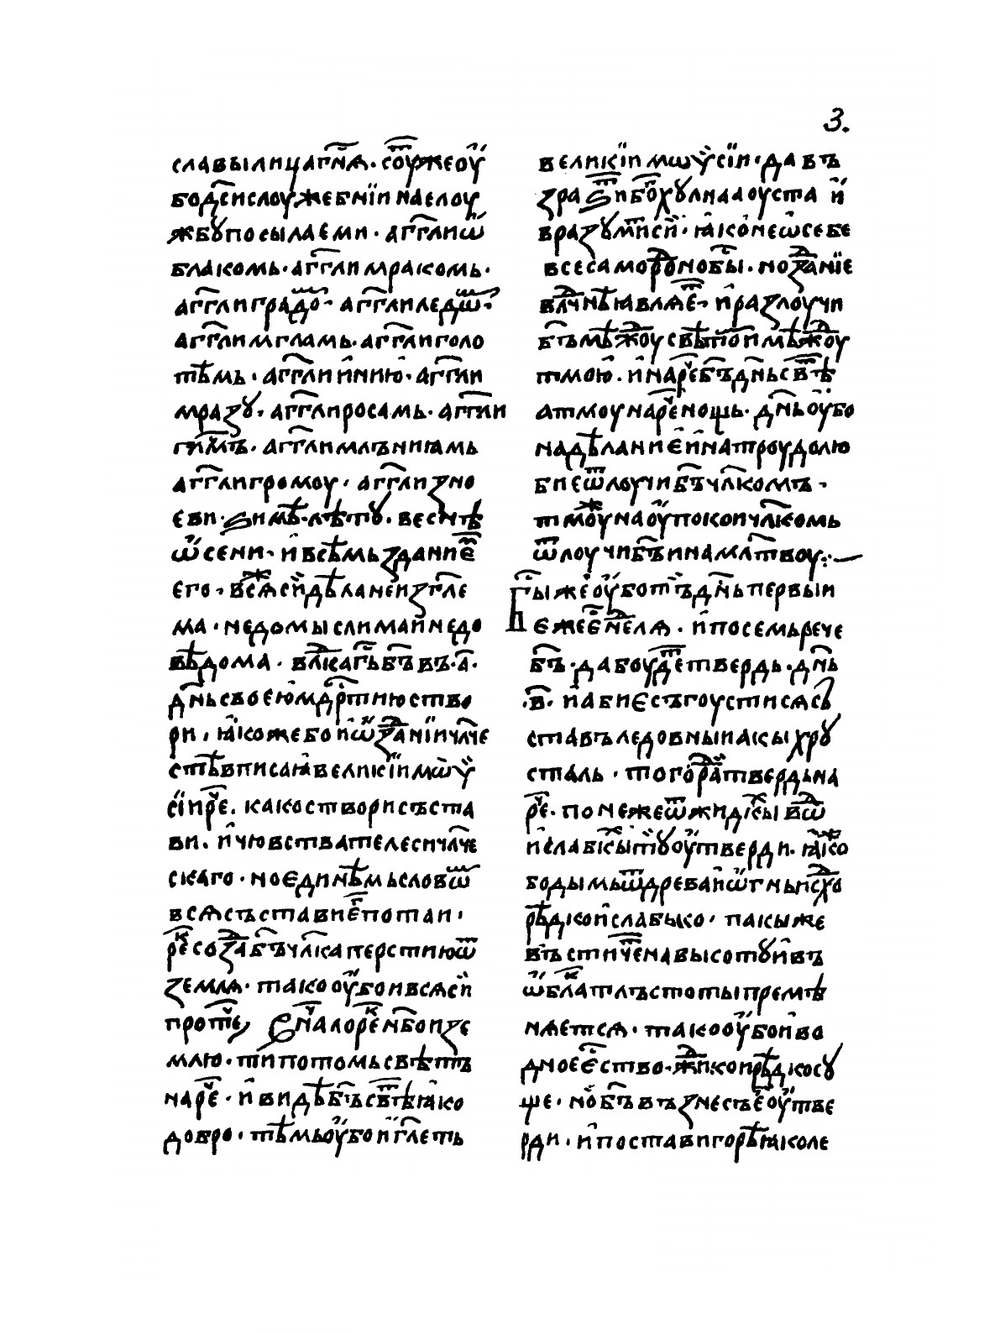 3.
славы лица агн҃ѧ · сѹ҃ть же ѹ
бо дс҃и слоужебнїи на е слоу
жбꙋ посылаеми · агг҃ли ѿ
блакомь · агг҃ли мракомь ·
агг҃ли градо · агг҃ли ледѿ ·
агг҃ли мгламь · агг҃ли голо
тѣмь · агг҃ли и инию · агг҃ли
мразꙋ · агг҃ли росамь · агг҃ли
агг҃ли млъниꙗмь
агг҃ли громоу · агг҃ли зно
еви · ѕимѣ · лѣтꙋ · веснѣ
ѡсени · и всѣмь зданиє
его · всѧ си дѣланеи гл҃е
ма · недомыслима и недо
вѣдома · вл҃ка г҃ь б҃ъ въ · а҃ ·
дн҃ь своею мдр҃тию ство
ри · ꙗкоже бо и ѿ зданїи чл҃че
стѣ вписаꙗ великїи мѡѵ
сїи р҃е · како створи съста
ви · и чювства телеси чл҃че
скаго · но єдинѣмь словѿ
всѧ съставиє потаи ·
рек҃ созда б҃ъ чл҃ка перстию ѿ
землѧ · тако ѹбо и всѧ си
проте, нача ре҃ н҃бо и зе
млю · ти потомь свѣтъ
наре҃ · и видѣ б҃ъ свѣ ꙗко
добро · тѣмь ѹбо и гл҃еть
великїи мѡѵсїи · да въ
зра ѕи бо҃хꙋлнаа оуста и
вразꙋм си · ꙗко не ѡ себе
все саморо н҃обы · но зданїе
вл҃чнѣ ꙗвлѧе · и разлоучи
б҃ъ мѣжоу свѣто и мѣжоу
тмою · и наре б҃ъ дн҃ь свѣ
а тмоу наре нощь · дн҃ь ѹбо
на дѣланиє и на троудолю
бие ѿлоучи б҃ъ чл҃комъ ·
тмоу на ѹпокои чл҃комь
ѿлоучи б҃ъ и на мл҃твоу :~
Бы же ѹбо тъ дн҃ь первыи
єже є неделѧ · и по семь рече
б҃ъ · да боуде твердь · дн҃ь
· в҃ · и абиє съгоустисѧ сь
ставъ ледовныи акы хрꙋ
сталь · того ра твердь на
ре҃ · понеже ѿ жидкы во
и слабкы тꙋ ѹтверди · ꙗко
воды мь ѿ древа и ѿгнь и сꙋхо
рѣдко и слабыко · пакы же
въстиче на высотꙋ и въ
ѡблк҃а тлъстоты премѣ
нѧетсѧ · тако ѹбо и во
дное єство · жико и рѣдко сꙋ
ще · но б҃ъ възнесъ е ѹтве
рди · и постави горѣ ꙗко ле